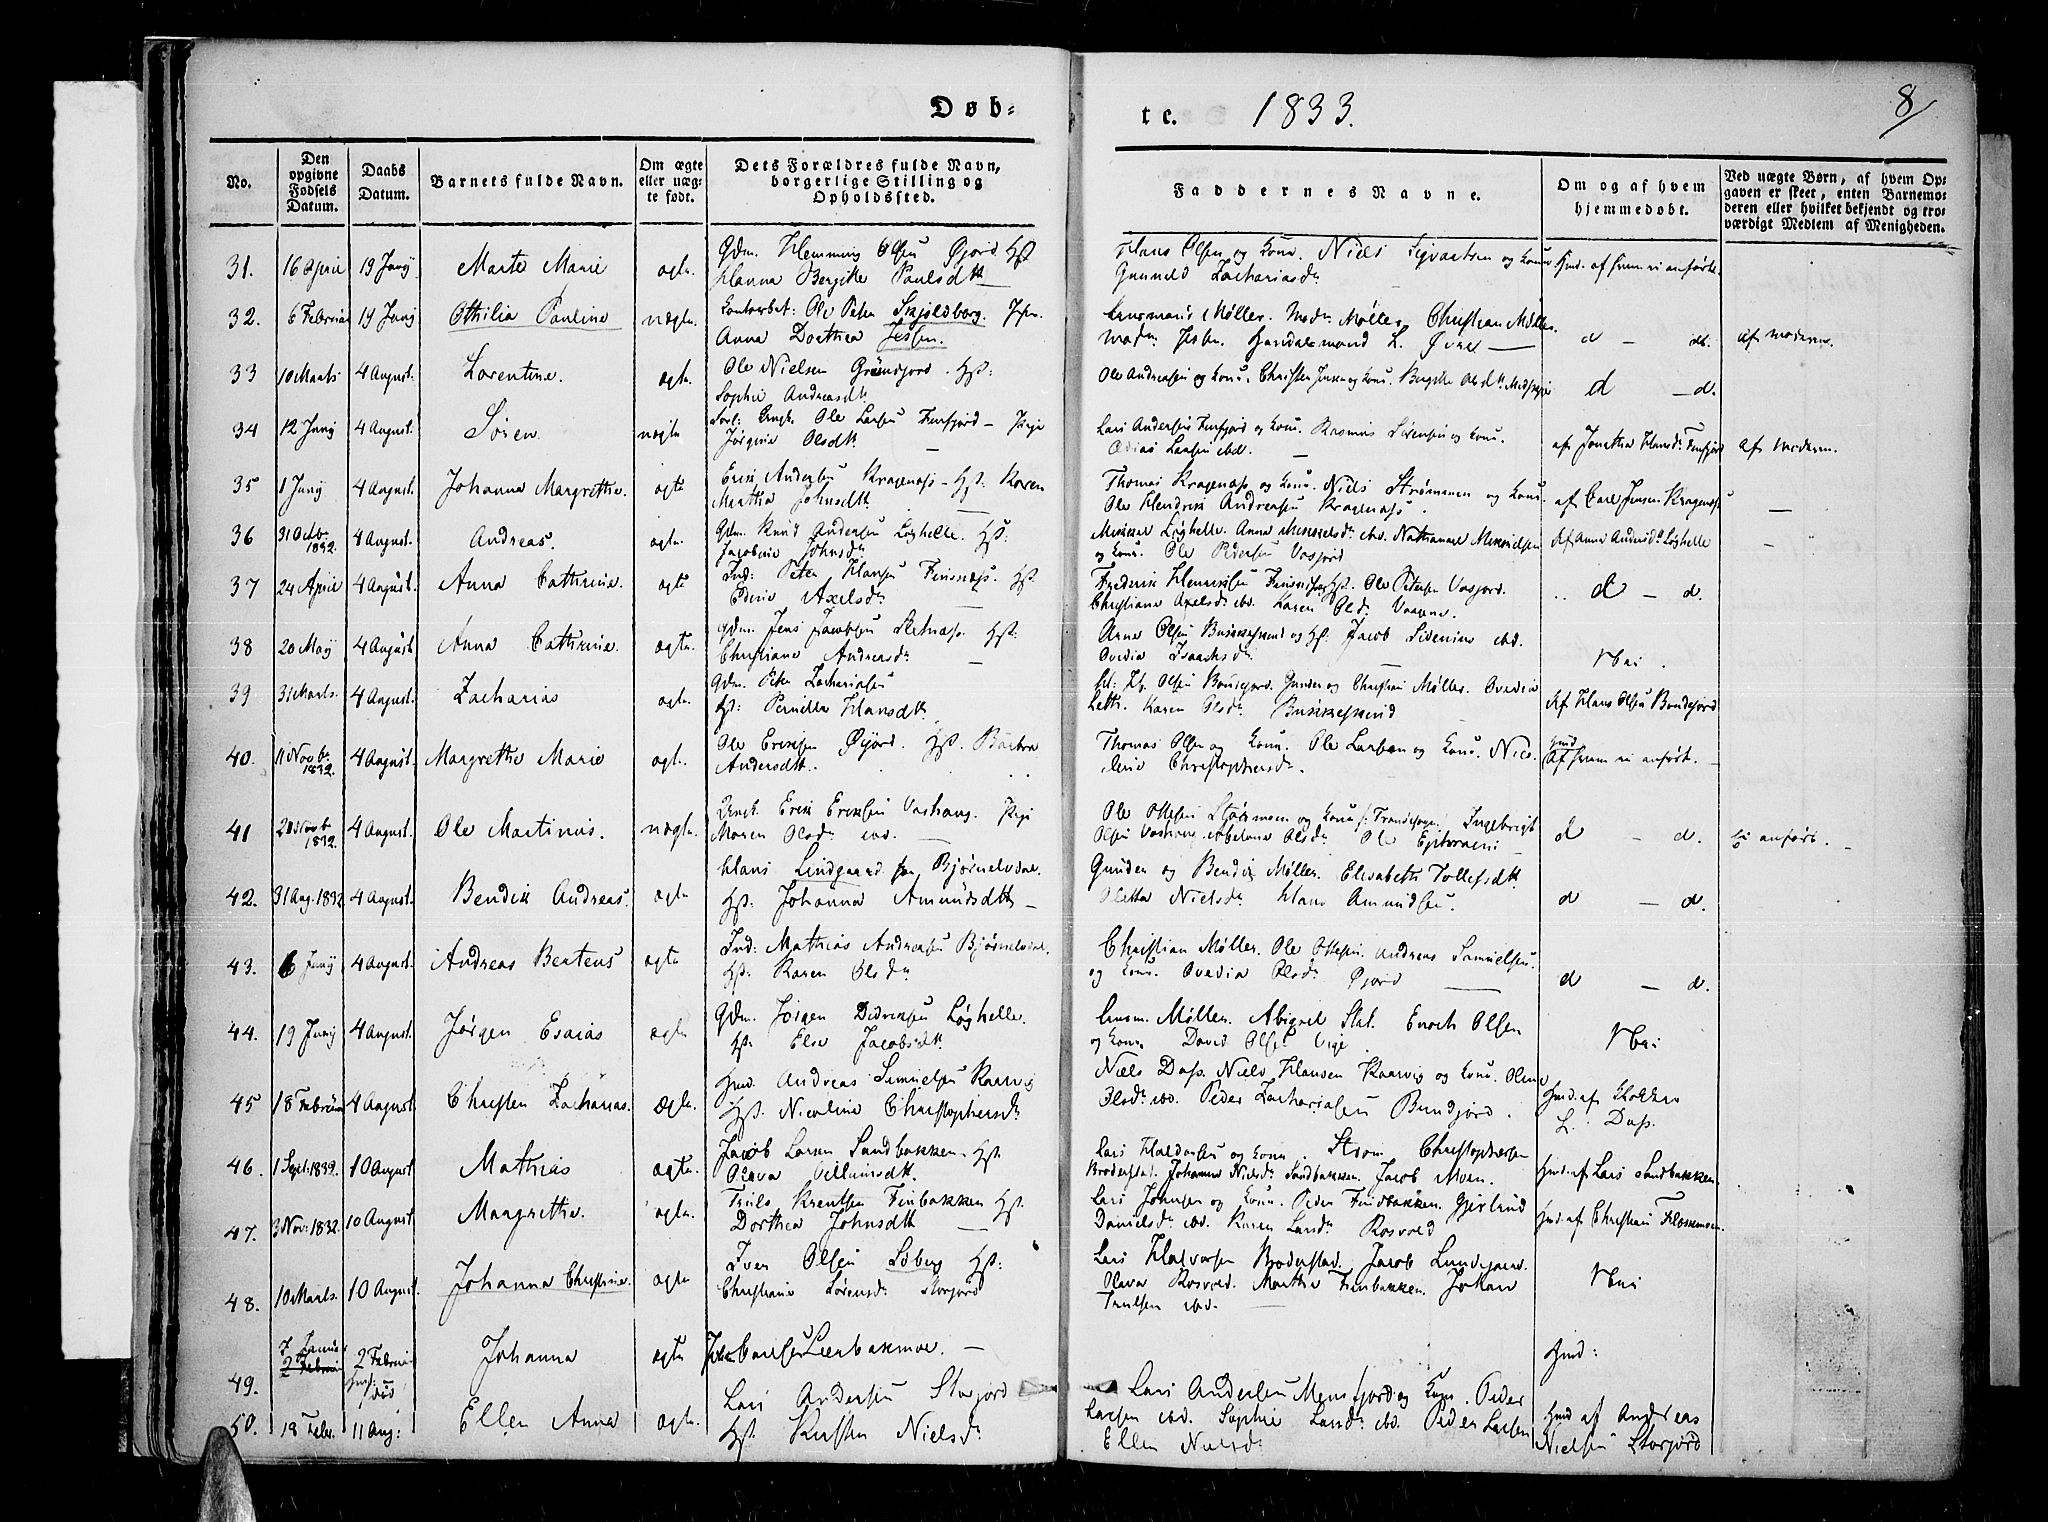 Døb=
te. 1833. 8
No. Den opgivne Fødsels Datum. Daabs Datum. Barnets fulde Navn. Om ægte eller uægte født. Dets Forældres fulde Navn, borgerlige Stilling og Opholdssted. Faddernes Navne. Om og af hvem hjemmedøbt. Ved uægte Børn, af hvem Opgaven er skeet, enten Barnemoderen eller hvilket bekjendt og troværdigt Medlem af Menigheden.
31. 16 April 19 Juny Marte Marie ægte Gdm. Hemming Olsen Øjord Hst
Hanna Bergitte Paulsdtt
Hans Olsen og Kone. Niels Sigvartsen og Kone
Gunneld Zachariasdr
Hmd. af hvem ei anført.
32. 6 Februar 19 Juny Otthilia Pauline uægte Ole Peter Skjoldborg.
Anna Dorthea Jessen.
Lensmand Møller. Mad. Møller, Christian Møller.
d — d. af moderen.
33 10 Marts 4 August. Lorentine. ægte Ole Nielsen Grundfjord. Hst:
Sophie Andreasdtr
Ole Andreasen og Kone. Christen Jensen og Kone.
d — d.
34 12 Juny 4 August. Sören. uægte Ole Larsen Finfjord — Pige
Jørgine Olsdtt
Lars Andersen Finfjord og Kone. Rasmus Sörensen og Kone.
Larsen ibd.
af Jonetha Hansdr Finfjord af moderen.
35 1 Juny 4 August. Johanna Margrethe. ægte Erik Andersen Kragenæss — Hst. Karen
Martha Johnsdtt
Thomas Kragenæss og Kone. Niels Strømmen og Kone.
Ole Hendrik Andreasen Kragenæss.
af Carl Jensen Kragenæss —
36 31 Octb. 1832. 4 August. Andreas. ægte Gdm. Knud Andersen Løghelle. Hst.
Jacobine Johnsdr
Mikkel Løghelle. Anna Mikkelsdr ibd. Nathanael Mikkelsen
og Kone. Ole Pedersen Vasjord
Af Anna Andersdr Løghelle —
37 24 April 4 August. Anna Cathrine. ægte Ind: Peter Hansen Finsnæss. Hst
Axelsdr
Frederik Henriksen Finsnæss Hst. Ole Petersen Vasjord.
Christiane Axelsdr ibd. Karen Olsdr Vaagene.
d — d.
38 20 May 4 August Anna Cathrine. ægte Gdm. Jens Jacobsen Sletnæss. Hst:
Christiane Andreasdr
Arne Olsen Buskeskind og Hst. Jacob Sidenius ibd.
Ovedia Isaachsdr
Nei.
39 31 Marts. 4 August. Zacharias ægte Gdm. Peter Zachariasen
Hst: Pernille Hansdtt.
Olsen Bondefjord. Gunder og Christian Møller. Ovedia
Karen Olsdr Buskeskind
Af Hans Olsen Bondefjord
40. 11 Novbr. 1832. 4 August. Margrethe Marie ægte Ole Eriksen Øijord. Hst. Barbra
Andersdtt.
Thomas Olsen og Kone. Ole Larsen og Kone. Nico-
line Christophersdr.
Hmd Af hvem ei anført.
41 2 Novb. 1832. 4 August. Ole Martinus. uægte. Ungk. Erik Eriksen Vashaug. Pige
Maren Olsdr ibd.
Ole Ottesen Storemoen og Kone Ingebrigt
Olsen Vashaug. Abelone Olsdr Ole
d — d. Ei anført.
42. 31 Aug. 1832 4 August. Bendik Andreas. ægte Hans Lindgaard fra Bjørnelvdal.
Hst: Johanna Amundsdtt —
Gunder og Bendix Møller. Elisabeth Tollefsdtt.
Oletta Nielsdr Hans Amundsen.
d — d.
43. 6 Juny 4 August. Andreas Berteus ægte Ind: Mathias Andreasen Bjørnelvdal.
Hst: Karen Olsdr
Christian Møller. Ole Ottesen. Andreas Samuelsen.
og Kone. Ovedia Olsdr Øjord
d — d.
44. 19 Juny 4 August. Jørgen Esaias ægte Gdm. Jørgen Didriksen Løghelle.
Hst: Else Jacobsdtt.
Lensm. Møller. Abigael Enoch Olsen
og Kone David Olsen Vige
Nei
45 18 Februar 4 August Christen Zacharias. ægte. Hmd. Andreas Samuelsen Kaarvig
Hst. Nicoline Christophersdr
Niels Dass. Niels Hansen Kaarvig og Kone. Oline
Olsdr ibd. Peder Zachariasen Bundjord.
Hmd. af Klokker
L. Dass.
46. 1 Sept. 1832. 10 August Mathias ægte Jacob Larsen Sandbakken. Hst
Olava Villumsdtt.
Lars Haldorsen og Kone. Christophersen
Broderstad. Johanna Nielsdr Sandbakken. Jacob Moen.
Hmd. af Lars Sandbakken.
47. 3 Nov: 1832. 10 August Margrethe. ægte. Truls Knudsen Finbakken Hst.
Dorthea Johnsdtt —
Lars Johnsen og Kone. Peder Findbakken. Gjertrud
Danielsdr ibd. Karen Larsdr Rosvold
Hmd. af Christian Flossemoen.
48. 10 Marts. 10 August. Johanna Christine. ægte Iver Olsen Soberg Hst:
Christiane Sørensdr Storjord
Lars Halvorsen Broderstad. Jacob Lundgaard.
Olava Rosvold. Marthe Finbakken. Johan
Trulsen ibd.
Nei
49. 7 Januar 2 Februar 2 Februar Johanna ægte Leenbakmoe. — Hmd:
50. 18 Febr. 11 Aug: Ellen Anna ægte. Lars Andersen Storjord
Hst. Kirsten Nielsdr
Lars Andersen Mensfjord og Kone. Peder
Larsen ibd. Sophie Larsdr ibd. Peder Larsen
Ellen Nielsdr
Hmd af Andreas
Nielsen Storjord